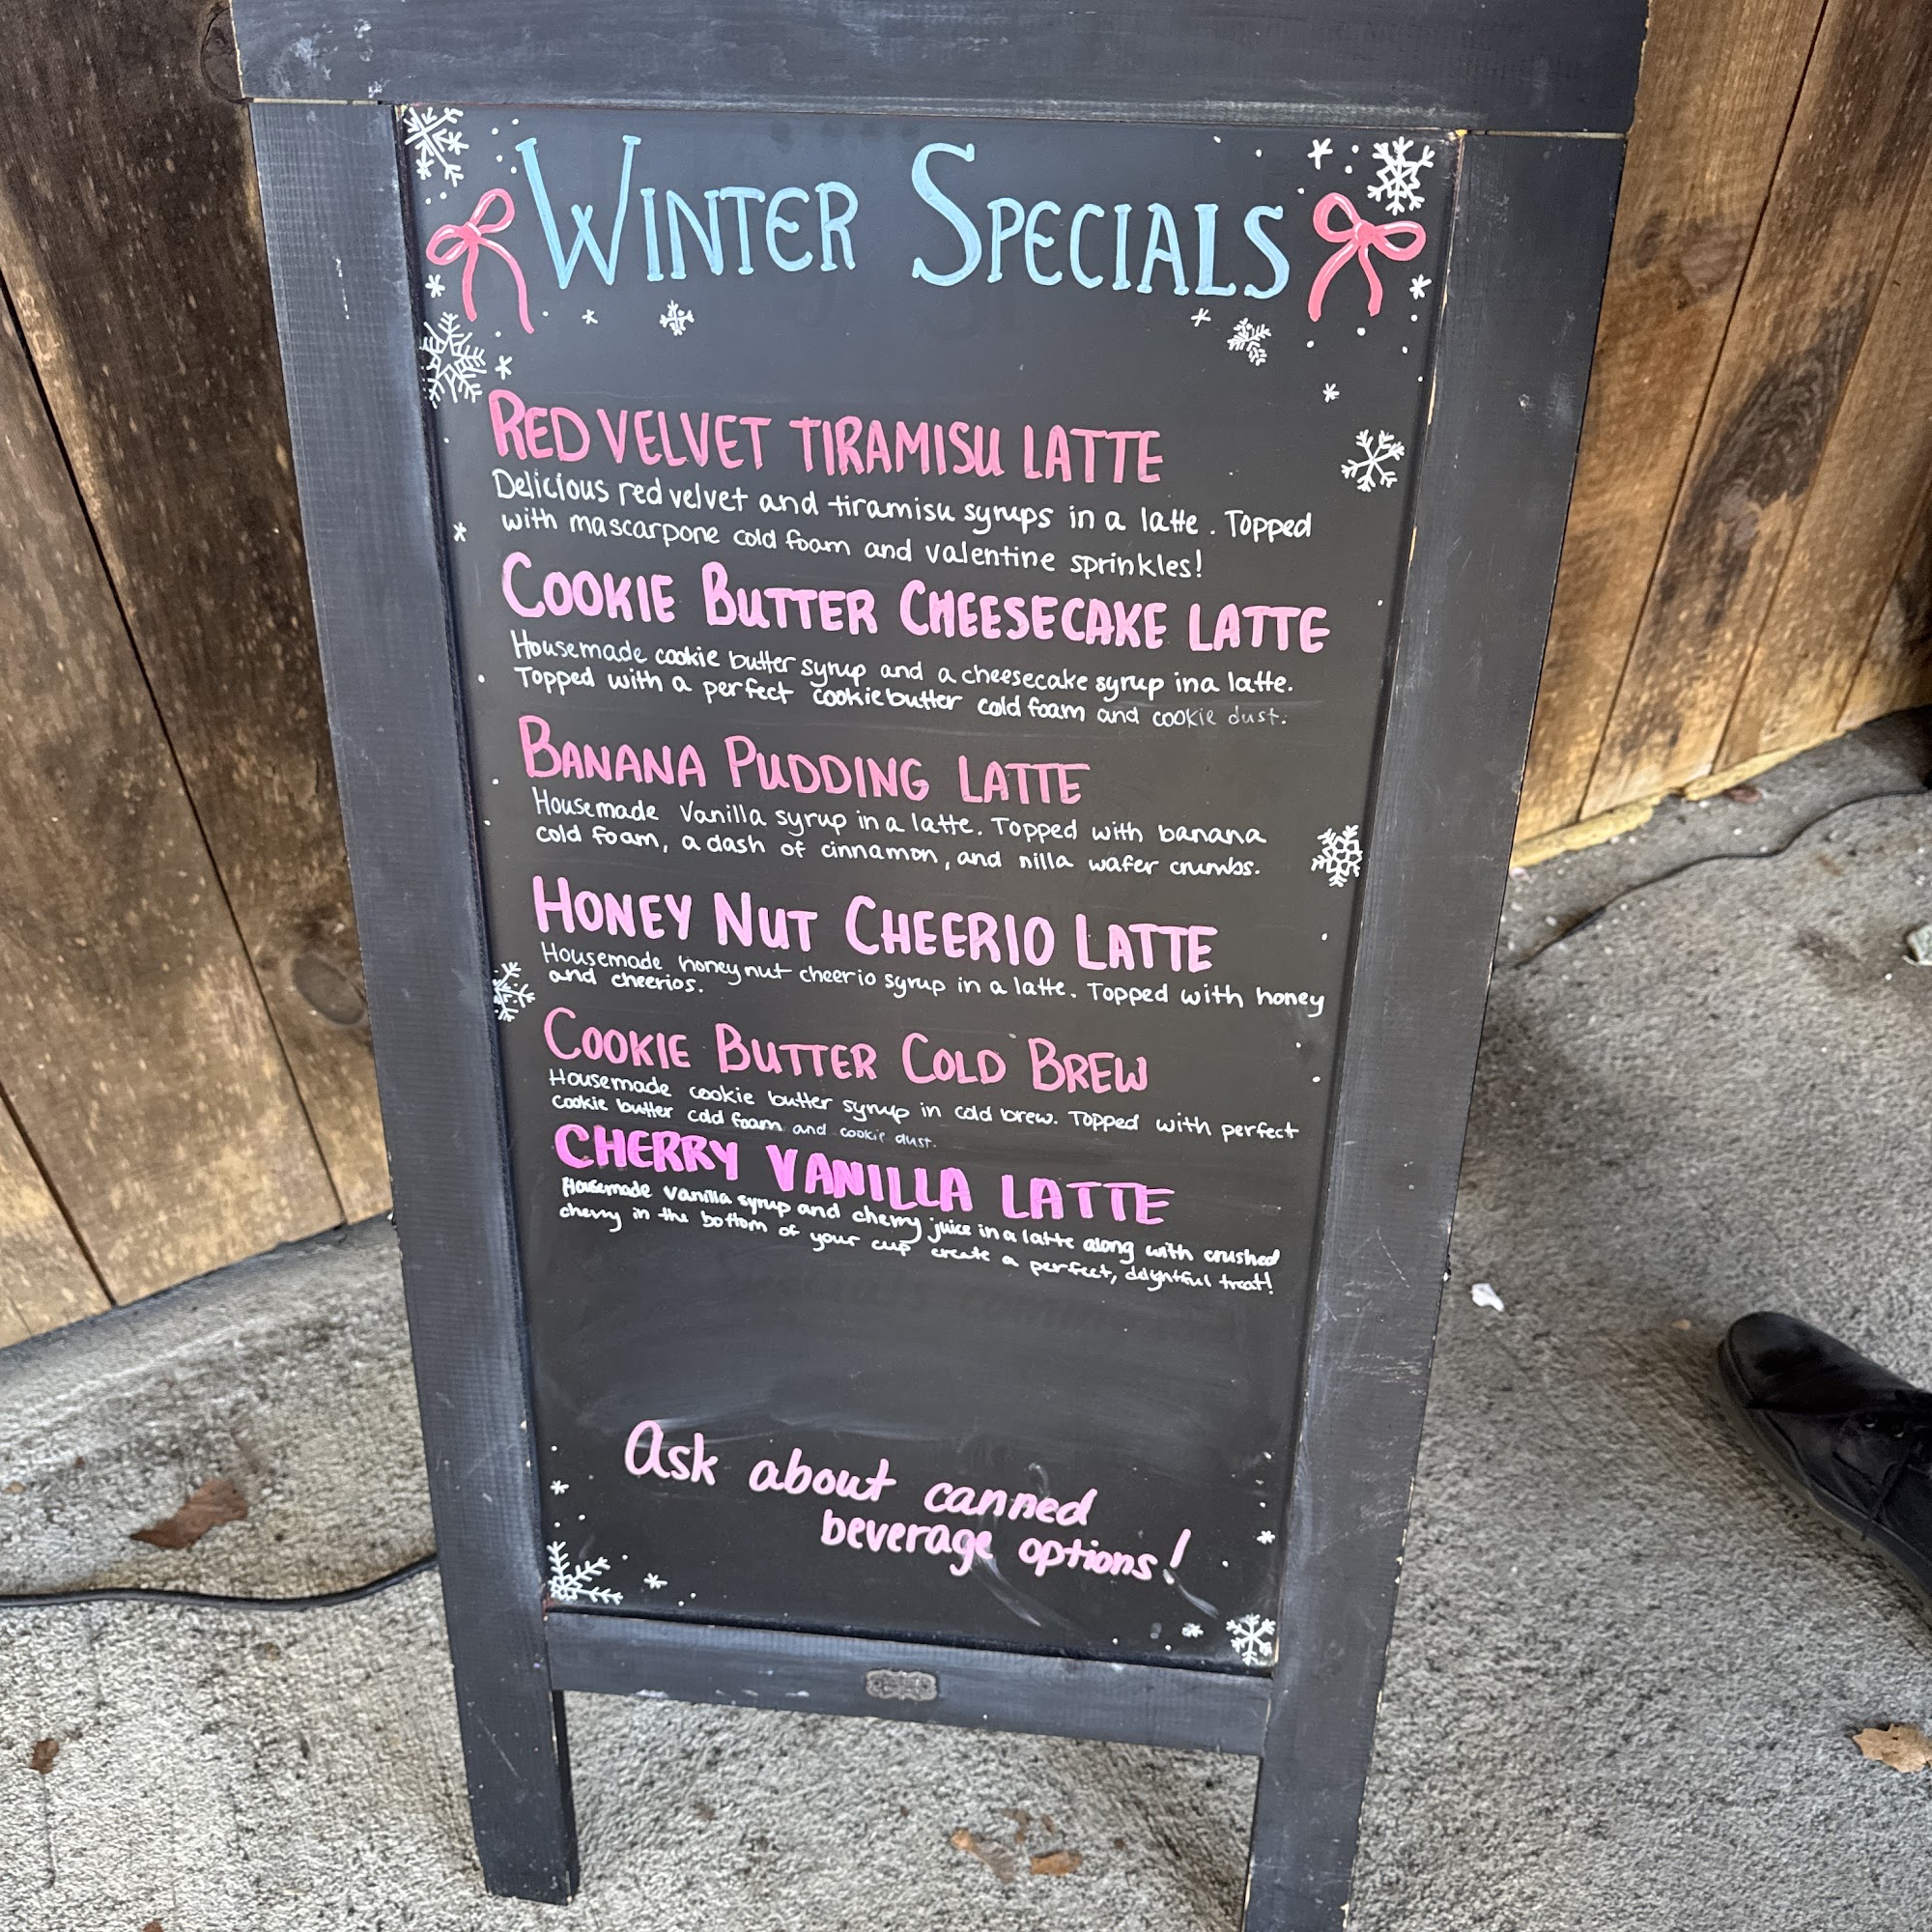 WINTER SPECIALS
RED VELVET TIRAMISU LATTE
Delicious red velvet and tiramisu syrups in a latte. Topped
with mascarpone cold foam and valentine sprinkles!
COOKIE BUTTER CHEESECAKE LATTE
Housemade cookie butter syrup and a cheesecake syrup in a latte.
Topped with a perfect cookie butter cold foam and cookie dust.
BANANA PUDDING LATTE
Housemade Vanilla syrup in a latte. Topped with banana
cold foam, a dash of cinnamon, and nilla wafer crumbs.
HONEY NUT CHEERIO LATTE
Housemade honey nut cheerio syrup in a latte. Topped with honey
and cheerios.
COOKIE BUTTER COLD BREW
Housemade cookie butter syrup in cold brew. Topped with perfect
cookie butter cold foam and cookie dust.
CHERRY VANILLA LATTE
Housemade Vanilla syrup and cherry juice in a latte along with crushed
cherry in the bottom of your cup create a perfect, delightful treat!
Ask about canned
beverage options!